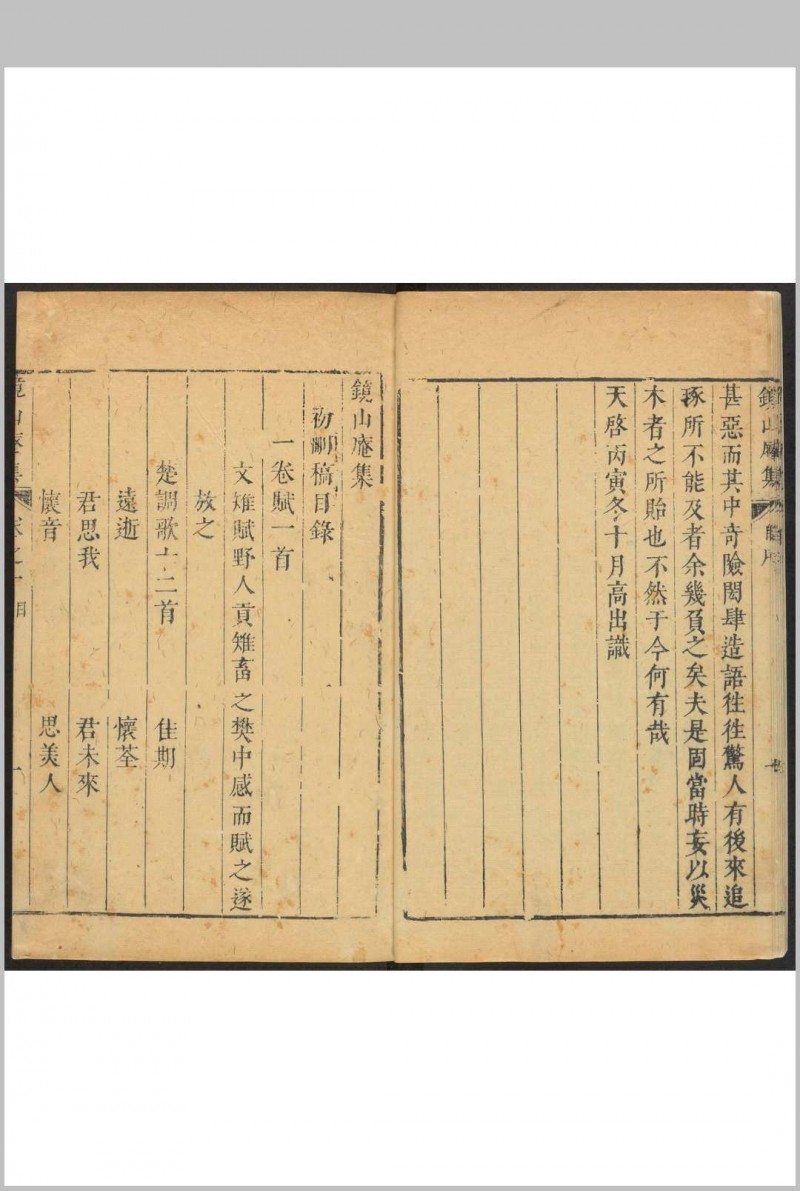 鏡山庵集
甚惡而其中奇險閎肆造語徃徃驚人有後來追
琢所不能及者余幾負之矣夫是固當時妄以災
木者之所貽也不然于今何有哉
天啓丙寅冬十月高出識
鏡山庵集
初刪稿目錄
一卷賦一首
文雉賦野人貢雉畜之樊中感而賦之遂
放之
楚調歌十二首 佳期
遠逝 懷荃
君思我 君未來
懷音 思美人
鏡山庵集 卷之一目 一